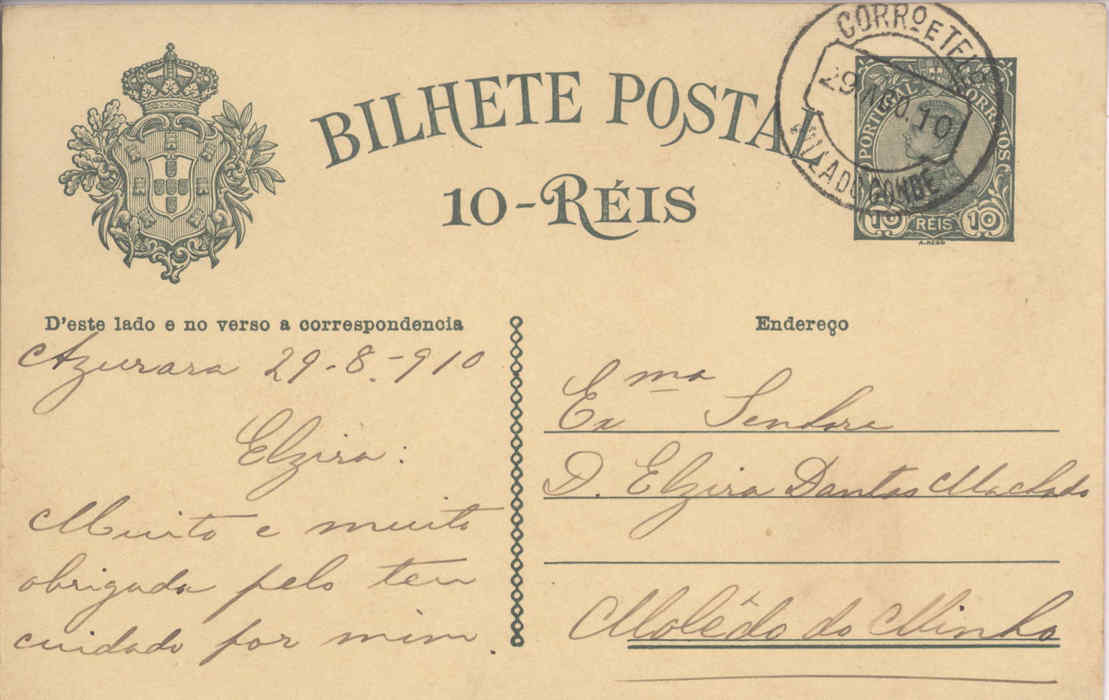 BILHETE POSTAL
10-RÉIS
CORRO E TEL
29 10
VILLA DO CONDE
PORTUGAL CORREIOS
10 REIS 10
D'este lado e no verso a correspondencia
Azurara 29-8-910
Elzira:
Muito e muito
obrigada pelo teu
cuidado por mim
Endereço
Exma Senhora
D. Elzira Dantas Machado
Molêdo do Minho